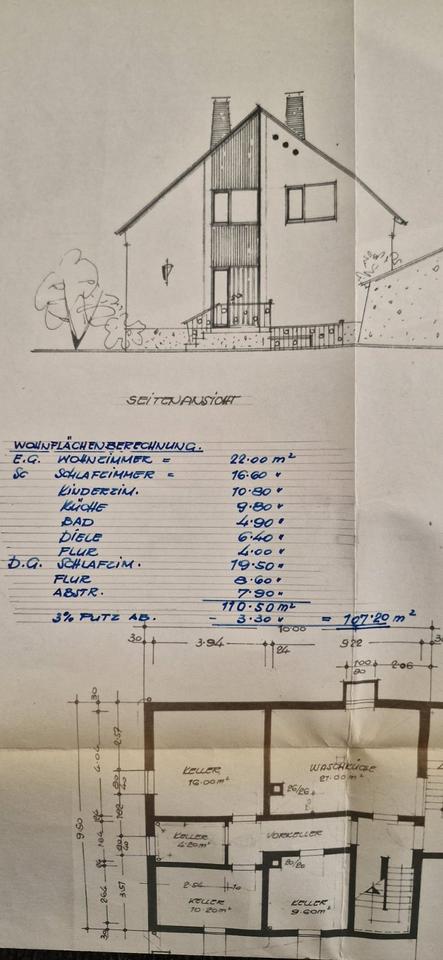 SEITENANSICHT
WOHNFLÄCHENBERECHNUNG.
E.G. WOHNZIMMER = 22.00 m²
SC SCHLAFZIMMER = 16.60 "
KINDERZIM. 10.80 "
KÜCHE 9.80 "
BAD 4.90 "
DIELE 6.40 "
FLUR 4.00 "
D.G. SCHLAFZIM. 19.50 "
FLUR 8.60 "
ABSTR. 7.90 "
110.50 m²
3% PUTZ AB. - 3.30 " = 107.20 m²
10.00
30 3.94 24 9.22
100 2.06
80
KELLER
16.00 m²
WASCHKÜCHE
21.00 m²
26/26
VORKELLER
KELLER
4.20 m²
20/20
2.64 10
KELLER
10.20 m²
KELLER
9.60 m²
9.50